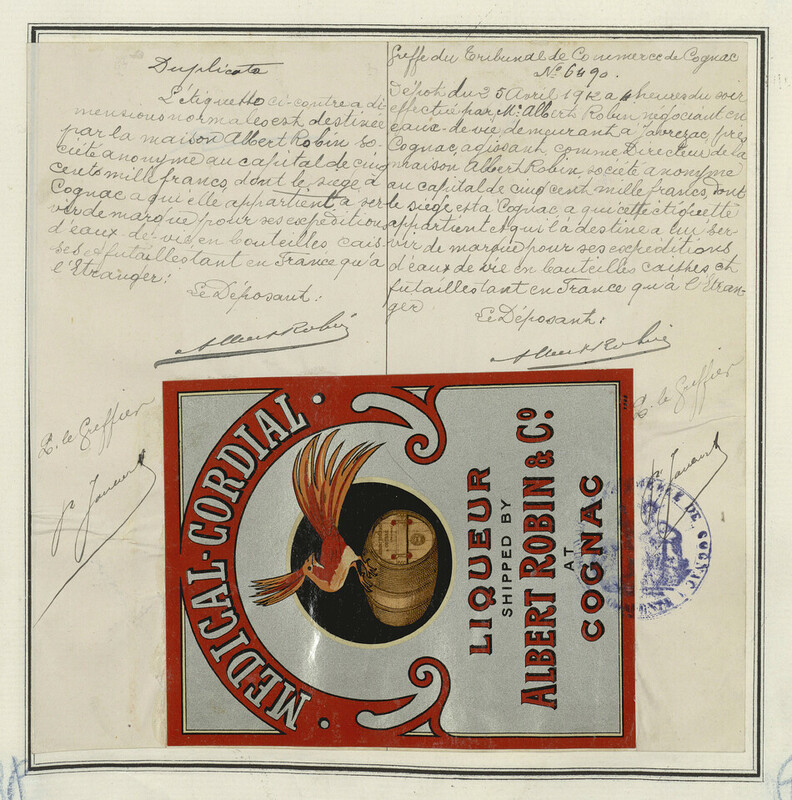 Duplicata
L'étiquette ci-contre a di-
mensions normales est destinée
par la maison Albert Robin so-
ciété anonyme au capital de cinq
cents mille francs, dont le siège à
Cognac a qui elle appartient a ser
vir de marque pour ses expéditions
d'eaux-de-vie en bouteilles cais-
ses et futailles tant en France qu'à
l'Etranger:
Le Déposant:
Albert Robin
P. le Greffier
Greffe du Tribunal de Commerce de Cognac
No 6490.
Dépôt du 25 Avril 1912 a 4 heures du soir
effectué par Mr. Albert Robin négociant en
eaux-de-vie demeurant a Javrezac près
Cognac, agissant comme Directeur de la
maison Albert Robin, société anonyme
au capital de cinq cent mille francs, dont
le siège est a Cognac, a qui cette etiquette
appartient et qui la destine a lui ser-
vir de marque pour ses expéditions
d'eaux de vie en bouteilles caisses et
futailles tant en France qu'à l'Etran-
ger
Le Déposant:
Albert Robin
P. le Greffier
MEDICAL-CORDIAL
LIQUEUR
SHIPPED BY
ALBERT ROBIN & Co.
AT
COGNAC
DE COGNAC